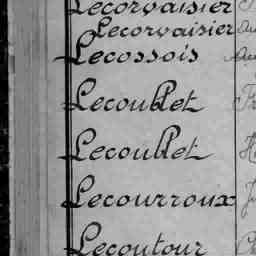 Lecorvaisier
Lecorvaisier
Lecossois
Lecoublet
Lecoublet
Lecourroux
Lecoutour